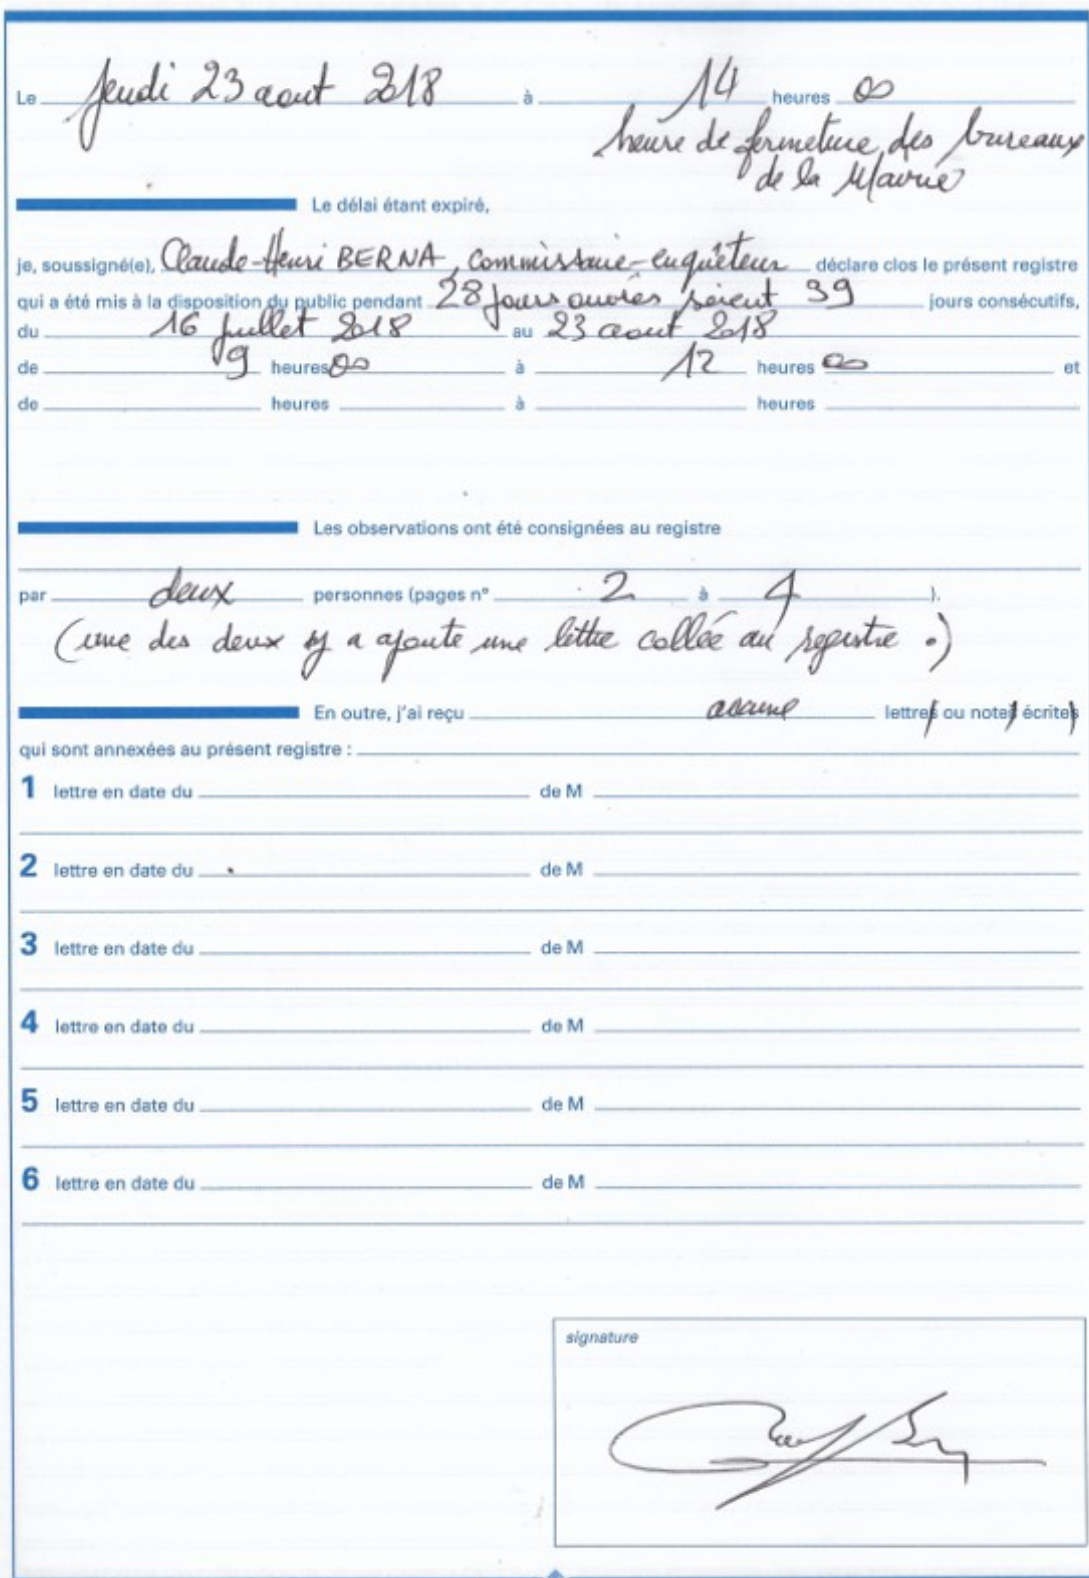 Le Jeudi 23 aout 2018 à 14 heures 00
heure de fermeture des bureaux
de la Mairie
Le délai étant expiré,
je, soussigné(e), Claude-Henri BERNA, commissaire-enquêteur déclare clos le présent registre
qui a été mis à la disposition du public pendant 28 jours ouvrés soient 39 jours consécutifs,
du 16 juillet 2018 au 23 aout 2018
de 9 heures 00 à 12 heures 00 et
de heures à heures
Les observations ont été consignées au registre
par deux personnes (pages n° 2 à 4 ).
(une des deux y a ajouté une lettre collée au registre.)
En outre, j'ai reçu aucune lettres ou notes écrites
qui sont annexées au présent registre :
1 lettre en date du de M
2 lettre en date du de M
3 lettre en date du de M
4 lettre en date du de M
5 lettre en date du de M
6 lettre en date du de M
signature